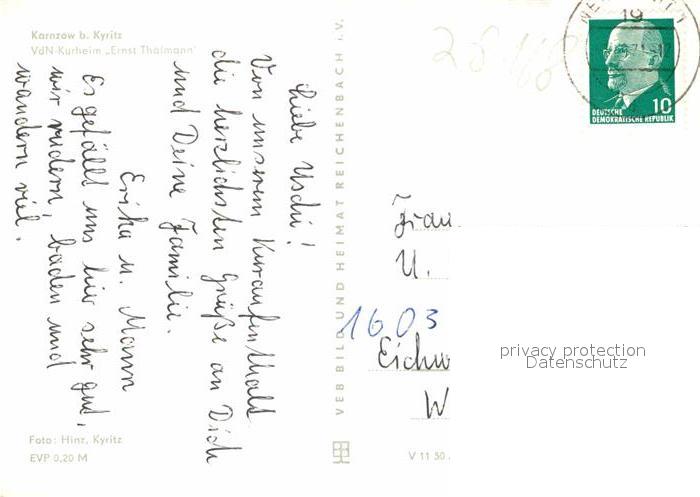 Karnzow b. Kyritz
VdN-Kurheim „Ernst Thälmann"
Liebe Uschi!
Von unserem Kuraufenthalt
die herzlichsten Grüße an Dich
und Deine Familie.
Erika u. Mann
Es gefällt uns hier sehr gut,
wir rudern, baden und
wandern viel.
Foto: Hinz, Kyritz
EVP 0,20 M
VEB BILD UND HEIMAT REICHENBACH i. V.
V 11 50
19
10
DEUTSCHE
DEMOKRATISCHE REPUBLIK
Frau
U.
1603
Eichw
W
privacy protection
Datenschutz